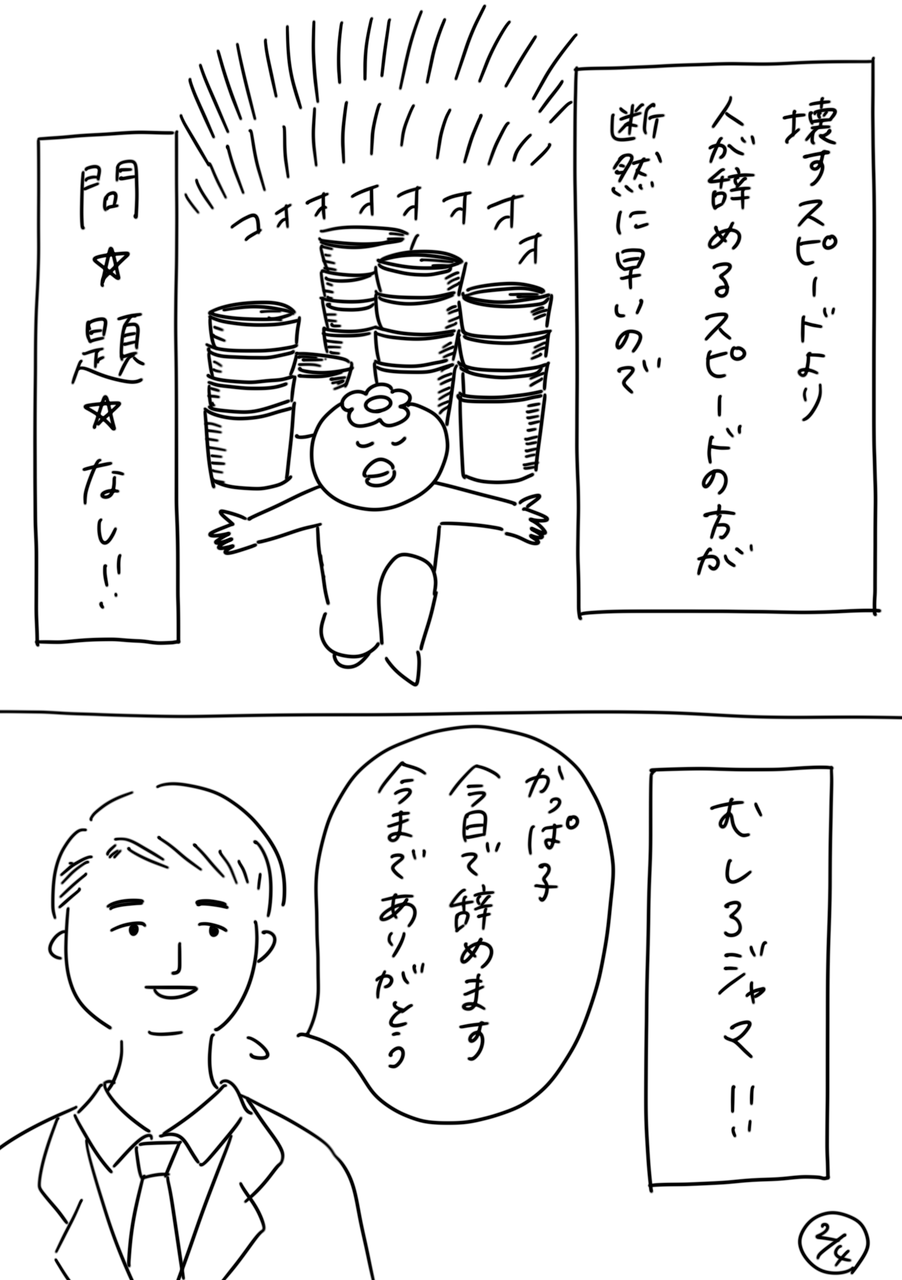 壊すスピードより
人が辞めるスピードの方が
断然に早いので
コオオオオオオオ
問☆題☆なし!!
むしろジャマ!!
かっぱ子
今日で辞めます
今まであり がとう
2/4